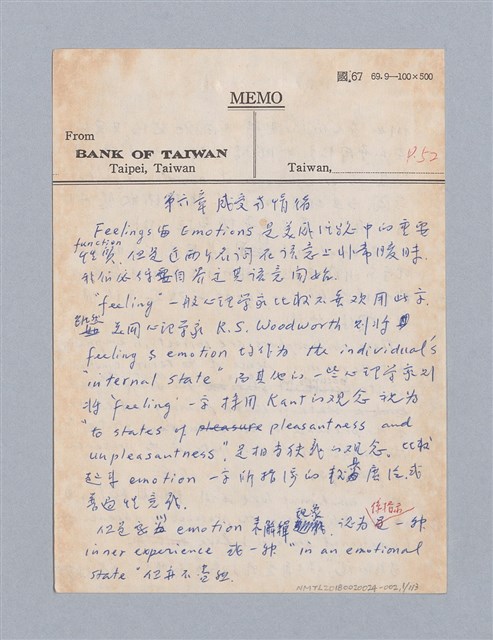 國.67 69.9—100×500
MEMO
From
BANK OF TAIWAN
Taipei, Taiwan
Taiwan,
P.52
第六章 感受與情緒
Feelings與Emotions是美感經驗中的重要
function
性質,但是這兩个名詞在語意上非常曖昧.
我們必須要自界定其語意開始.
"feeling"一般心理學家比較不喜歡用此字.
美國心理學家 R.S. Woodworth 則將
feeling & emotion 均作為 the individual's
"internal state" 而其他的一些心理學家則
將 "feeling" 一字採用Kant的觀念認為
"to states of pleasure pleasantness and
unpleasantness", 是相當狹義的觀念. 比較
起來 emotion 一字所指涉的較為廣泛或
普遍性意義.
但是若當 emotion 來解釋現象, 認為是一種
inner experience 或一種 "in an emotional
state" 但并不
NMTL20180020024-002,1/113